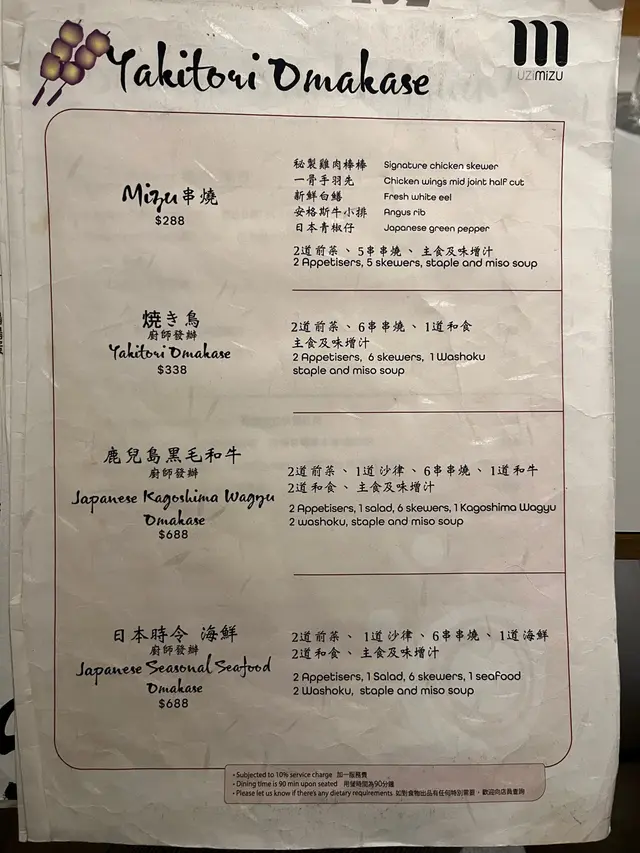 Yakitori Omakase
UZIMIZU
Mizu串燒
$288
秘製雞肉棒棒 Signature chicken skewer
一骨手羽先 Chicken wings mid joint half cut
新鮮白鱔 Fresh white eel
安格斯牛小排 Angus rib
日本青椒仔 Japanese green pepper
2道前菜、5串串燒、主食及味增汁
2 Appetisers, 5 skewers, staple and miso soup
焼き鳥
廚師發辦
Yakitori Omakase
$338
2道前菜、6串串燒、1道和食
主食及味增汁
2 Appetisers, 6 skewers, 1 Washoku
staple and miso soup
鹿兒島黑毛和牛
廚師發辦
Japanese Kagoshima Wagyu
Omakase
$688
2道前菜、1道沙律、6串串燒、1道和牛
2道和食、主食及味增汁
2 Appetisers, 1 salad, 6 skewers, 1 Kagoshima Wagyu
2 washoku, staple and miso soup
日本時令 海鮮
廚師發辦
Japanese Seasonal Seafood
Omakase
$688
2道前菜、1道沙律、6串串燒、1道海鮮
2道和食、主食及味增汁
2 Appetisers, 1 Salad, 6 skewers, 1 seafood
2 Washoku, staple and miso soup
• Subjected to 10% service charge 加一服務費
• Dining time is 90 min upon seated 用餐時間為90分鐘
• Please let us know if there's any dietary requirements 如對食物出品有任何特別需要，歡迎向店員查詢